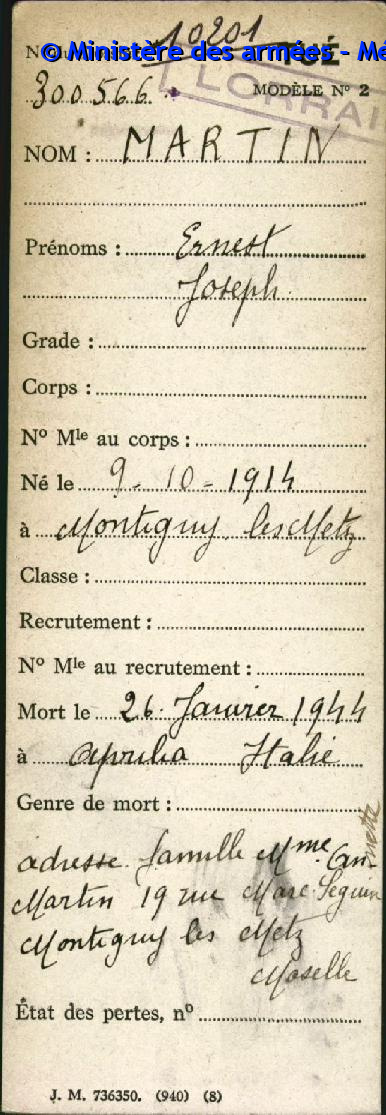 10201
© Ministère des armées - Mé
300566
MODÈLE Nº 2
LORRAI
NOM : MARTIN
Prénoms : Ernest
Joseph
Grade :
Corps :
Nº Mle au corps :
Né le 9-10-1914
à Montigny les Metz
Classe :
Recrutement :
Nº Mle au recrutement :
Mort le 26 Janvier 1944
à Aprilia Italie
Genre de mort :
adresse famille Mme.
Martin 19 rue Marc Seguin
Montigny les Metz
Moselle
État des pertes, nº
J. M. 736350. (940) (8)